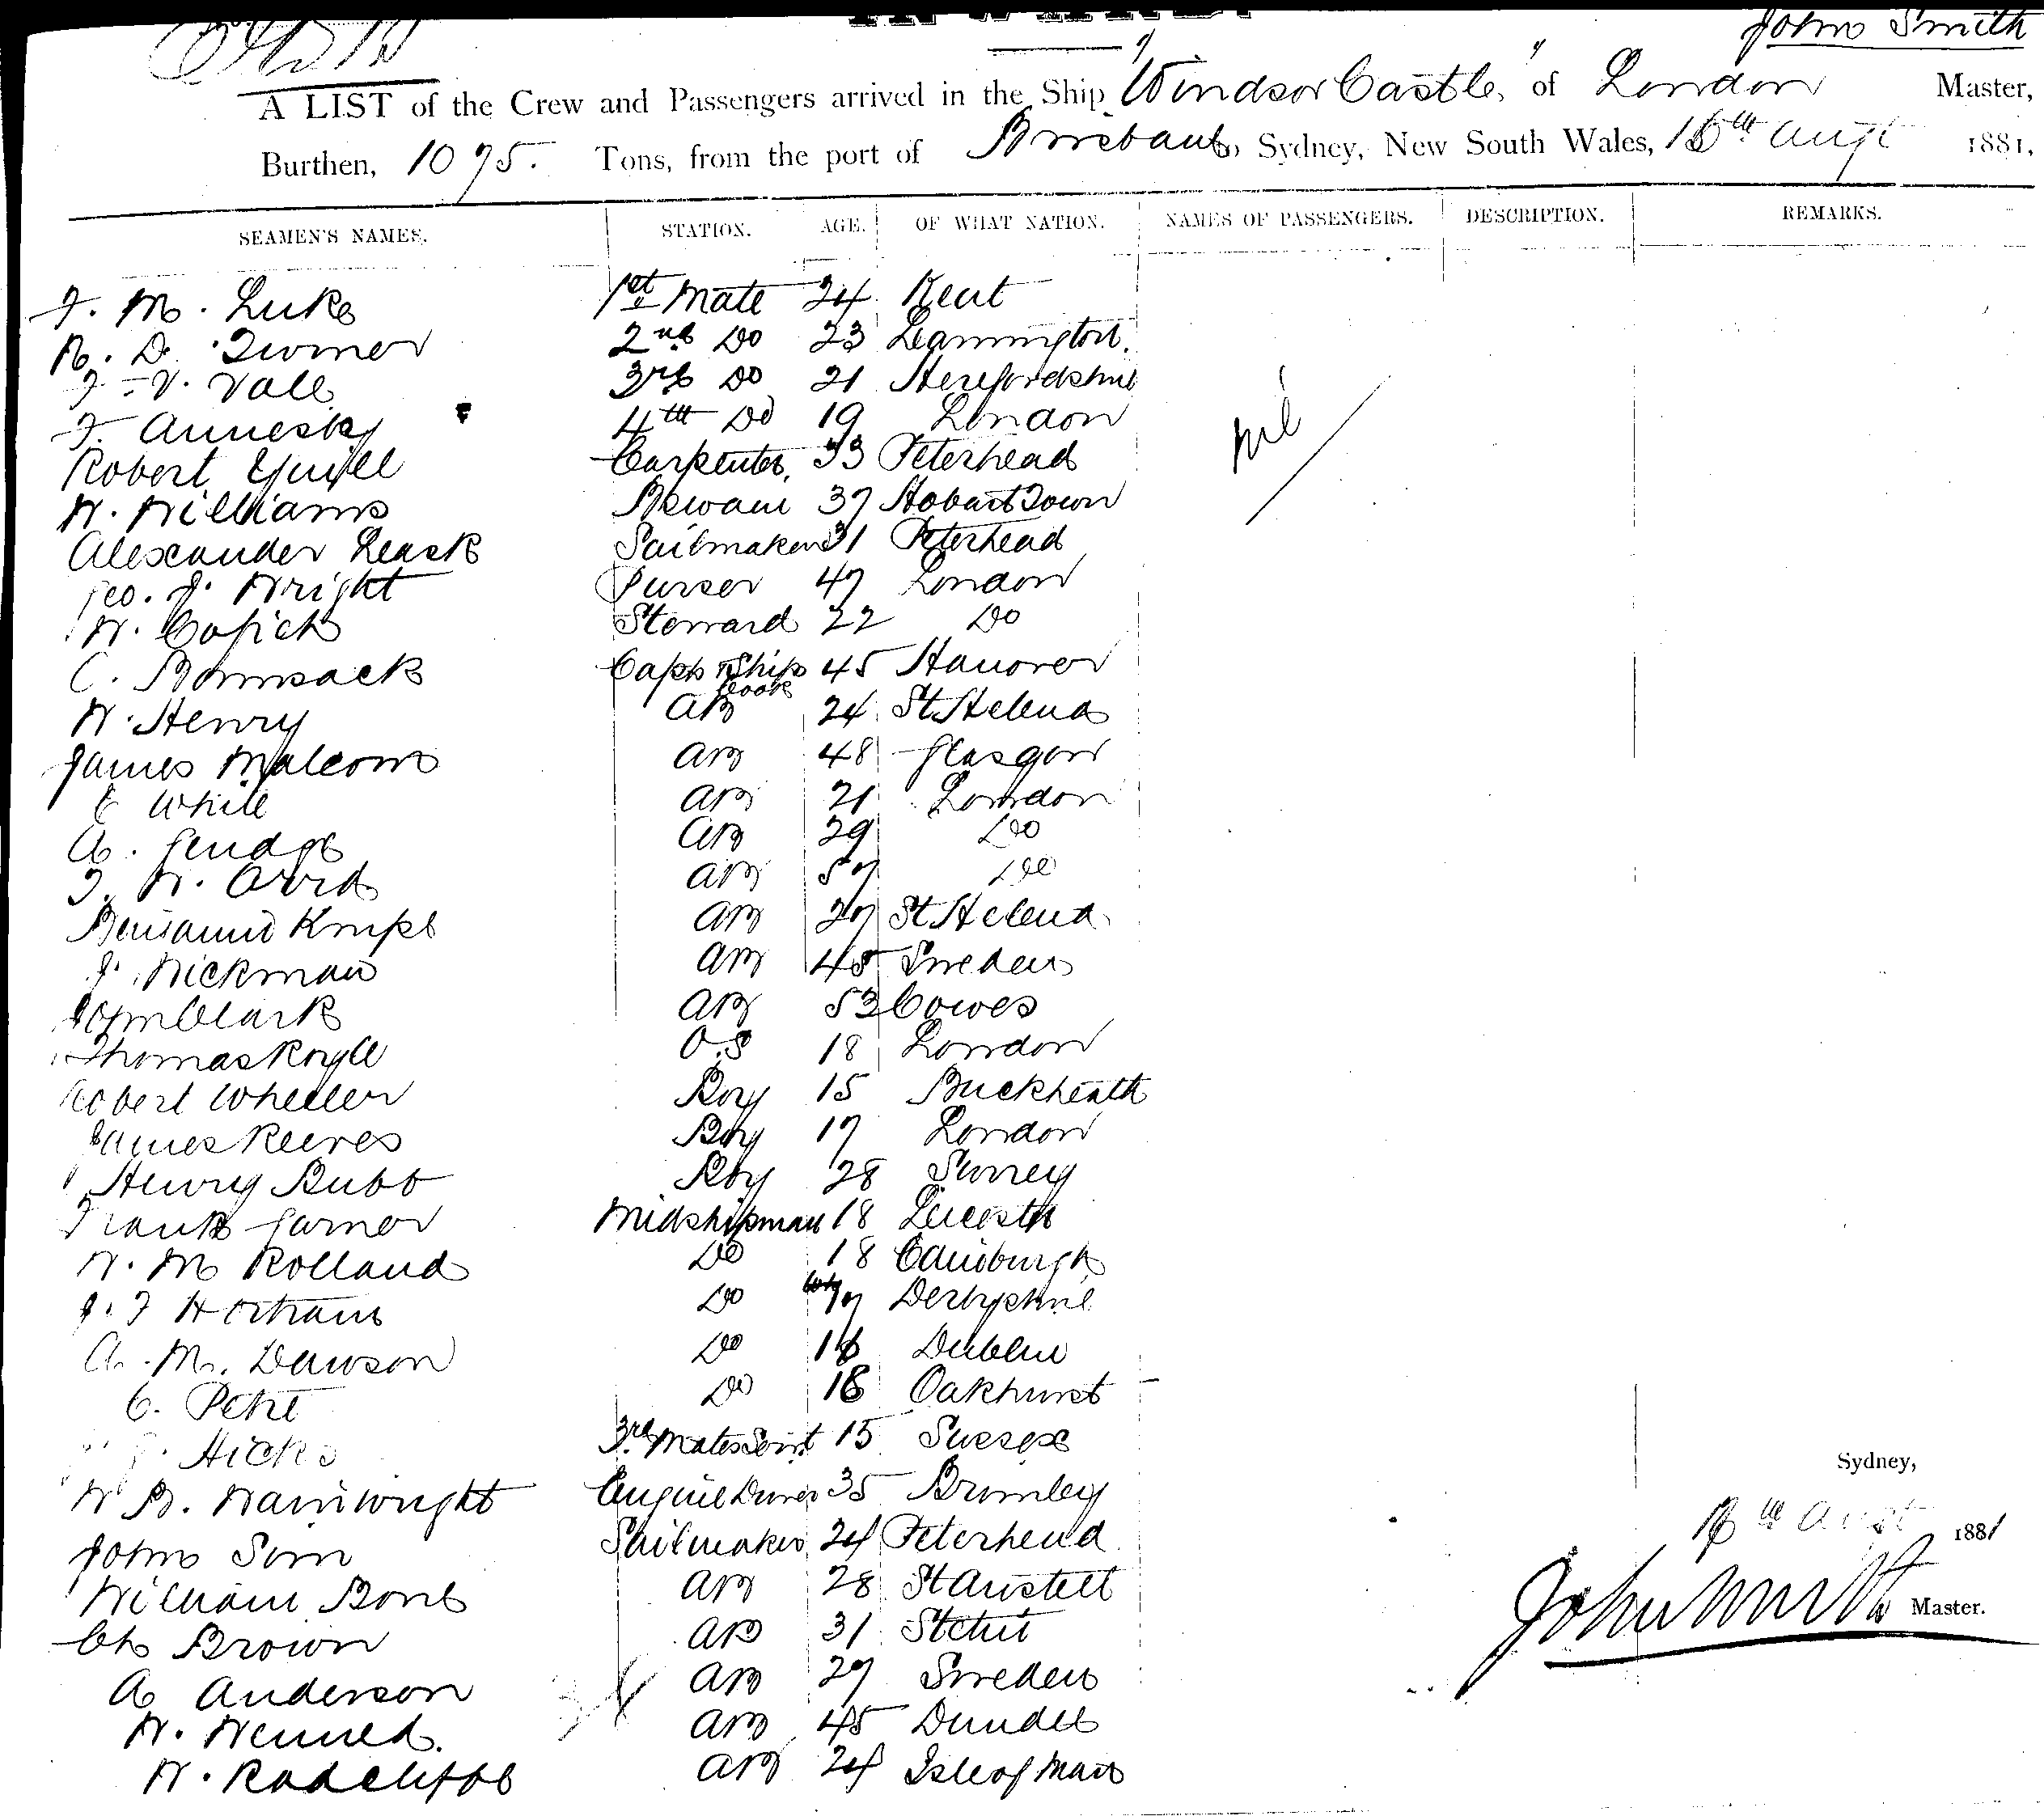 John Smith
A LIST of the Crew and Passengers arrived in the Ship "Windsor Castle" of London Master,
Burthen, 1075. Tons, from the port of Brisbane to Sydney, New South Wales, 16th Augt 1881,
SEAMEN'S NAMES. STATION. AGE. OF WHAT NATION. NAMES OF PASSENGERS. DESCRIPTION. REMARKS.
F. M. Luke 1st Mate 24 Kent
R. D. Turner 2nd Do 23 Leamington.
F. V. Vale 3rd Do 21 Herefordshire
F. Annesley 4th Do 19 London
nil
Robert Yuill Carpenter 33 Peterhead
W. Williams 37 Hobart Town
Alexander Leask Sailmaker 31 Peterhead
Geo. J. Wright Purser 47 London
W. Steward 22 Do
C. Bormsack Capts & Ships Cook 45 Hanover
W. Henry AB 24 St Helena
James Malcom AB 48 Glasgow
C White AB 21 London
A. Gudge AB 29 Do
AB 57 Do
Benjamin Knipe AB 27 St Helena
J. Wickman AB 45 Sweden
John Clark AB 52 Cowes
Thomas Royle O.S 18 London
Robert Wheeler Boy 15 Buckheath
James Reeves Boy 17 London
Henry Bubb Boy 28 Surrey
Frank Garner Midshipman 18 Leicester
W. M Rolland Do 18 Edinburgh
J. F Do 17 Derbyshire
A. M. Dawson Do 16 Dublin
C. Do 18 Oakhurst
Hicks 3rd Mates Servt 15 Sussex
Sydney,
W B. Wainwright Engine Driver 35 Bromley
16th Augst 1881
John Sim Sailmaker 24 Peterhead
William Bone AB 28 St Austell
John Smith Master.
Ch Brown AB 31
A Anderson AB 27 Sweden
W. AB 45 Dundee
W. Radcliffe AB 24 Isle of Man